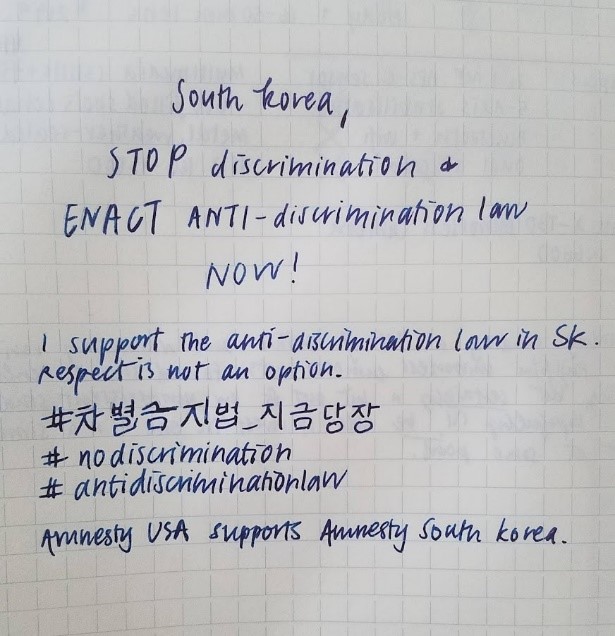 South korea,
STOP discrimination &
ENACT ANTI-discrimination law
NOW!
I support the anti-discrimination law in SK.
Respect is not an option.
#차별금지법_지금당장
# nodiscrimination
# antidiscriminationlaw
Amnesty USA supports Amnesty South korea.